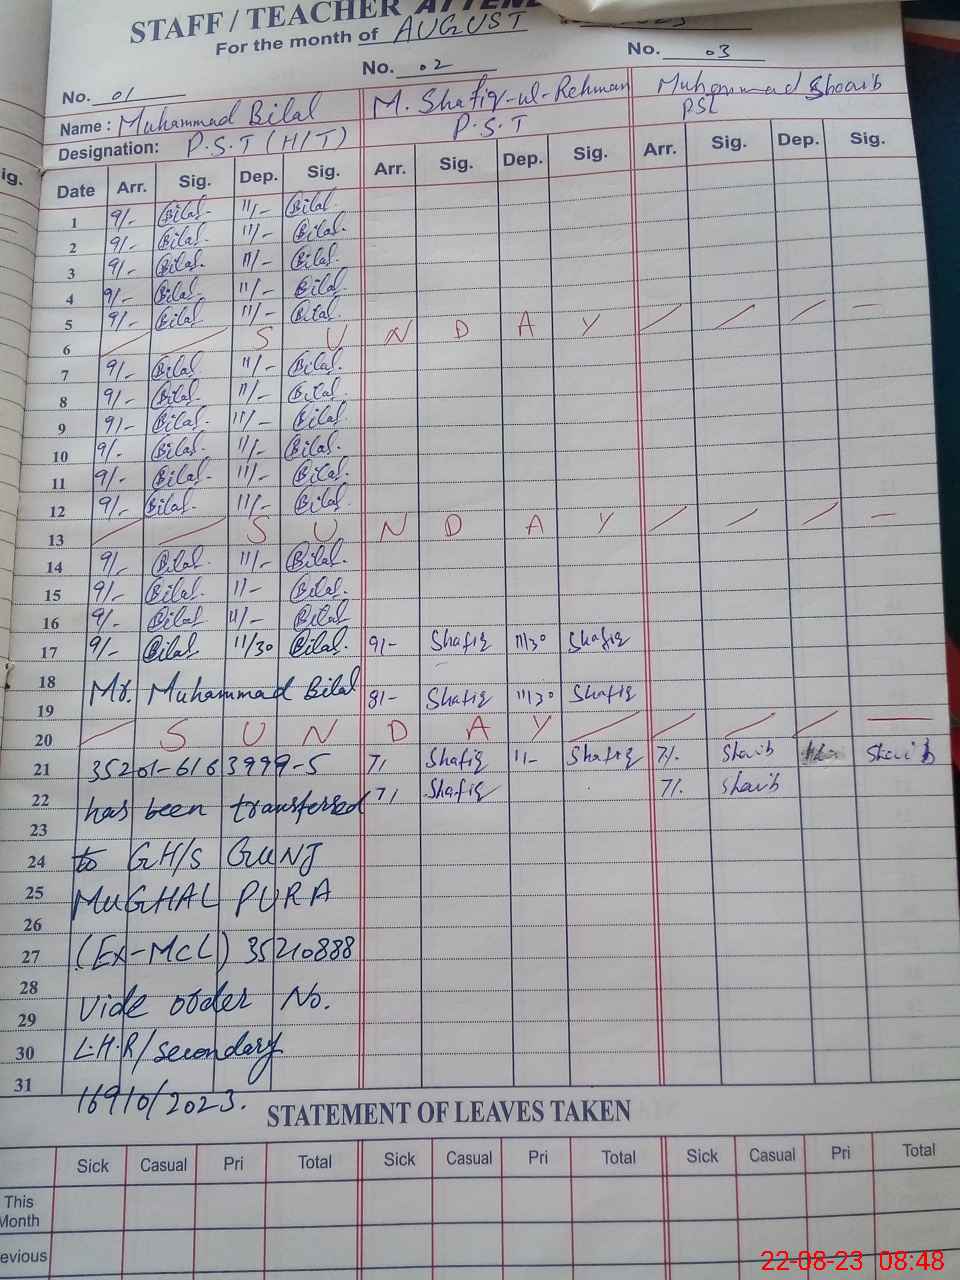 STAFF / TEACHER
For the month of AUGUST
No. 01 No. 02 No. 03
Name : Muhammad Bilal M. Shafiq-ul-Rehman Muhammad Shoaib
Designation: P.S.T (H/T) P.S.T PST
Date Arr. Sig. Dep. Sig. Arr. Sig. Dep. Sig. Arr. Sig. Dep. Sig.
1 9/- Bilal. 11/- Bilal.
2 9/- Bilal. 11/- Bilal.
3 9/- Bilal. 11/- Bilal.
4 9/- Bilal 11/- Bilal
5 9/- Bilal 11/- Bilal.
6 S U N D A Y
7 9/- Bilal 11/- Bilal.
8 9/- Bilal. 11/- Bilal.
9 9/- Bilal. 11/- Bilal.
10 9/- Bilal. 11/- Bilal.
11 9/- Bilal. 11/- Bilal.
12 9/- Bilal. 11/- Bilal.
13 S U N D A Y
14 9/- Bilal. 11/- Bilal.
15 9/- Bilal. 11- Bilal.
16 9/- Bilal 11/- Bilal
17 9/- Bilal 11/30 Bilal. 9/- Shafiq 11/30 Shafiq
18 Mr. Muhammad Bilal
19 Shafiq 11/30 Shafiq
20 S U N D A Y
21 35201-6163999-5 7/ Shafiq 11- Shafiq 7/. Shoaib Shoaib
22 has been transferred 7/ Shafiq 7/. Shoaib
23
24 to GH/S GUNJ
25 MUGHAL PURA
26
27 (Ex-MCL) 35210888
28
29 vide order No.
30 L.H.R/secondary
31
16910/2023.
STATEMENT OF LEAVES TAKEN
Sick Casual Pri Total Sick Casual Pri Total Sick Casual Pri Total
This
Month
evious
22-08-23 08:48